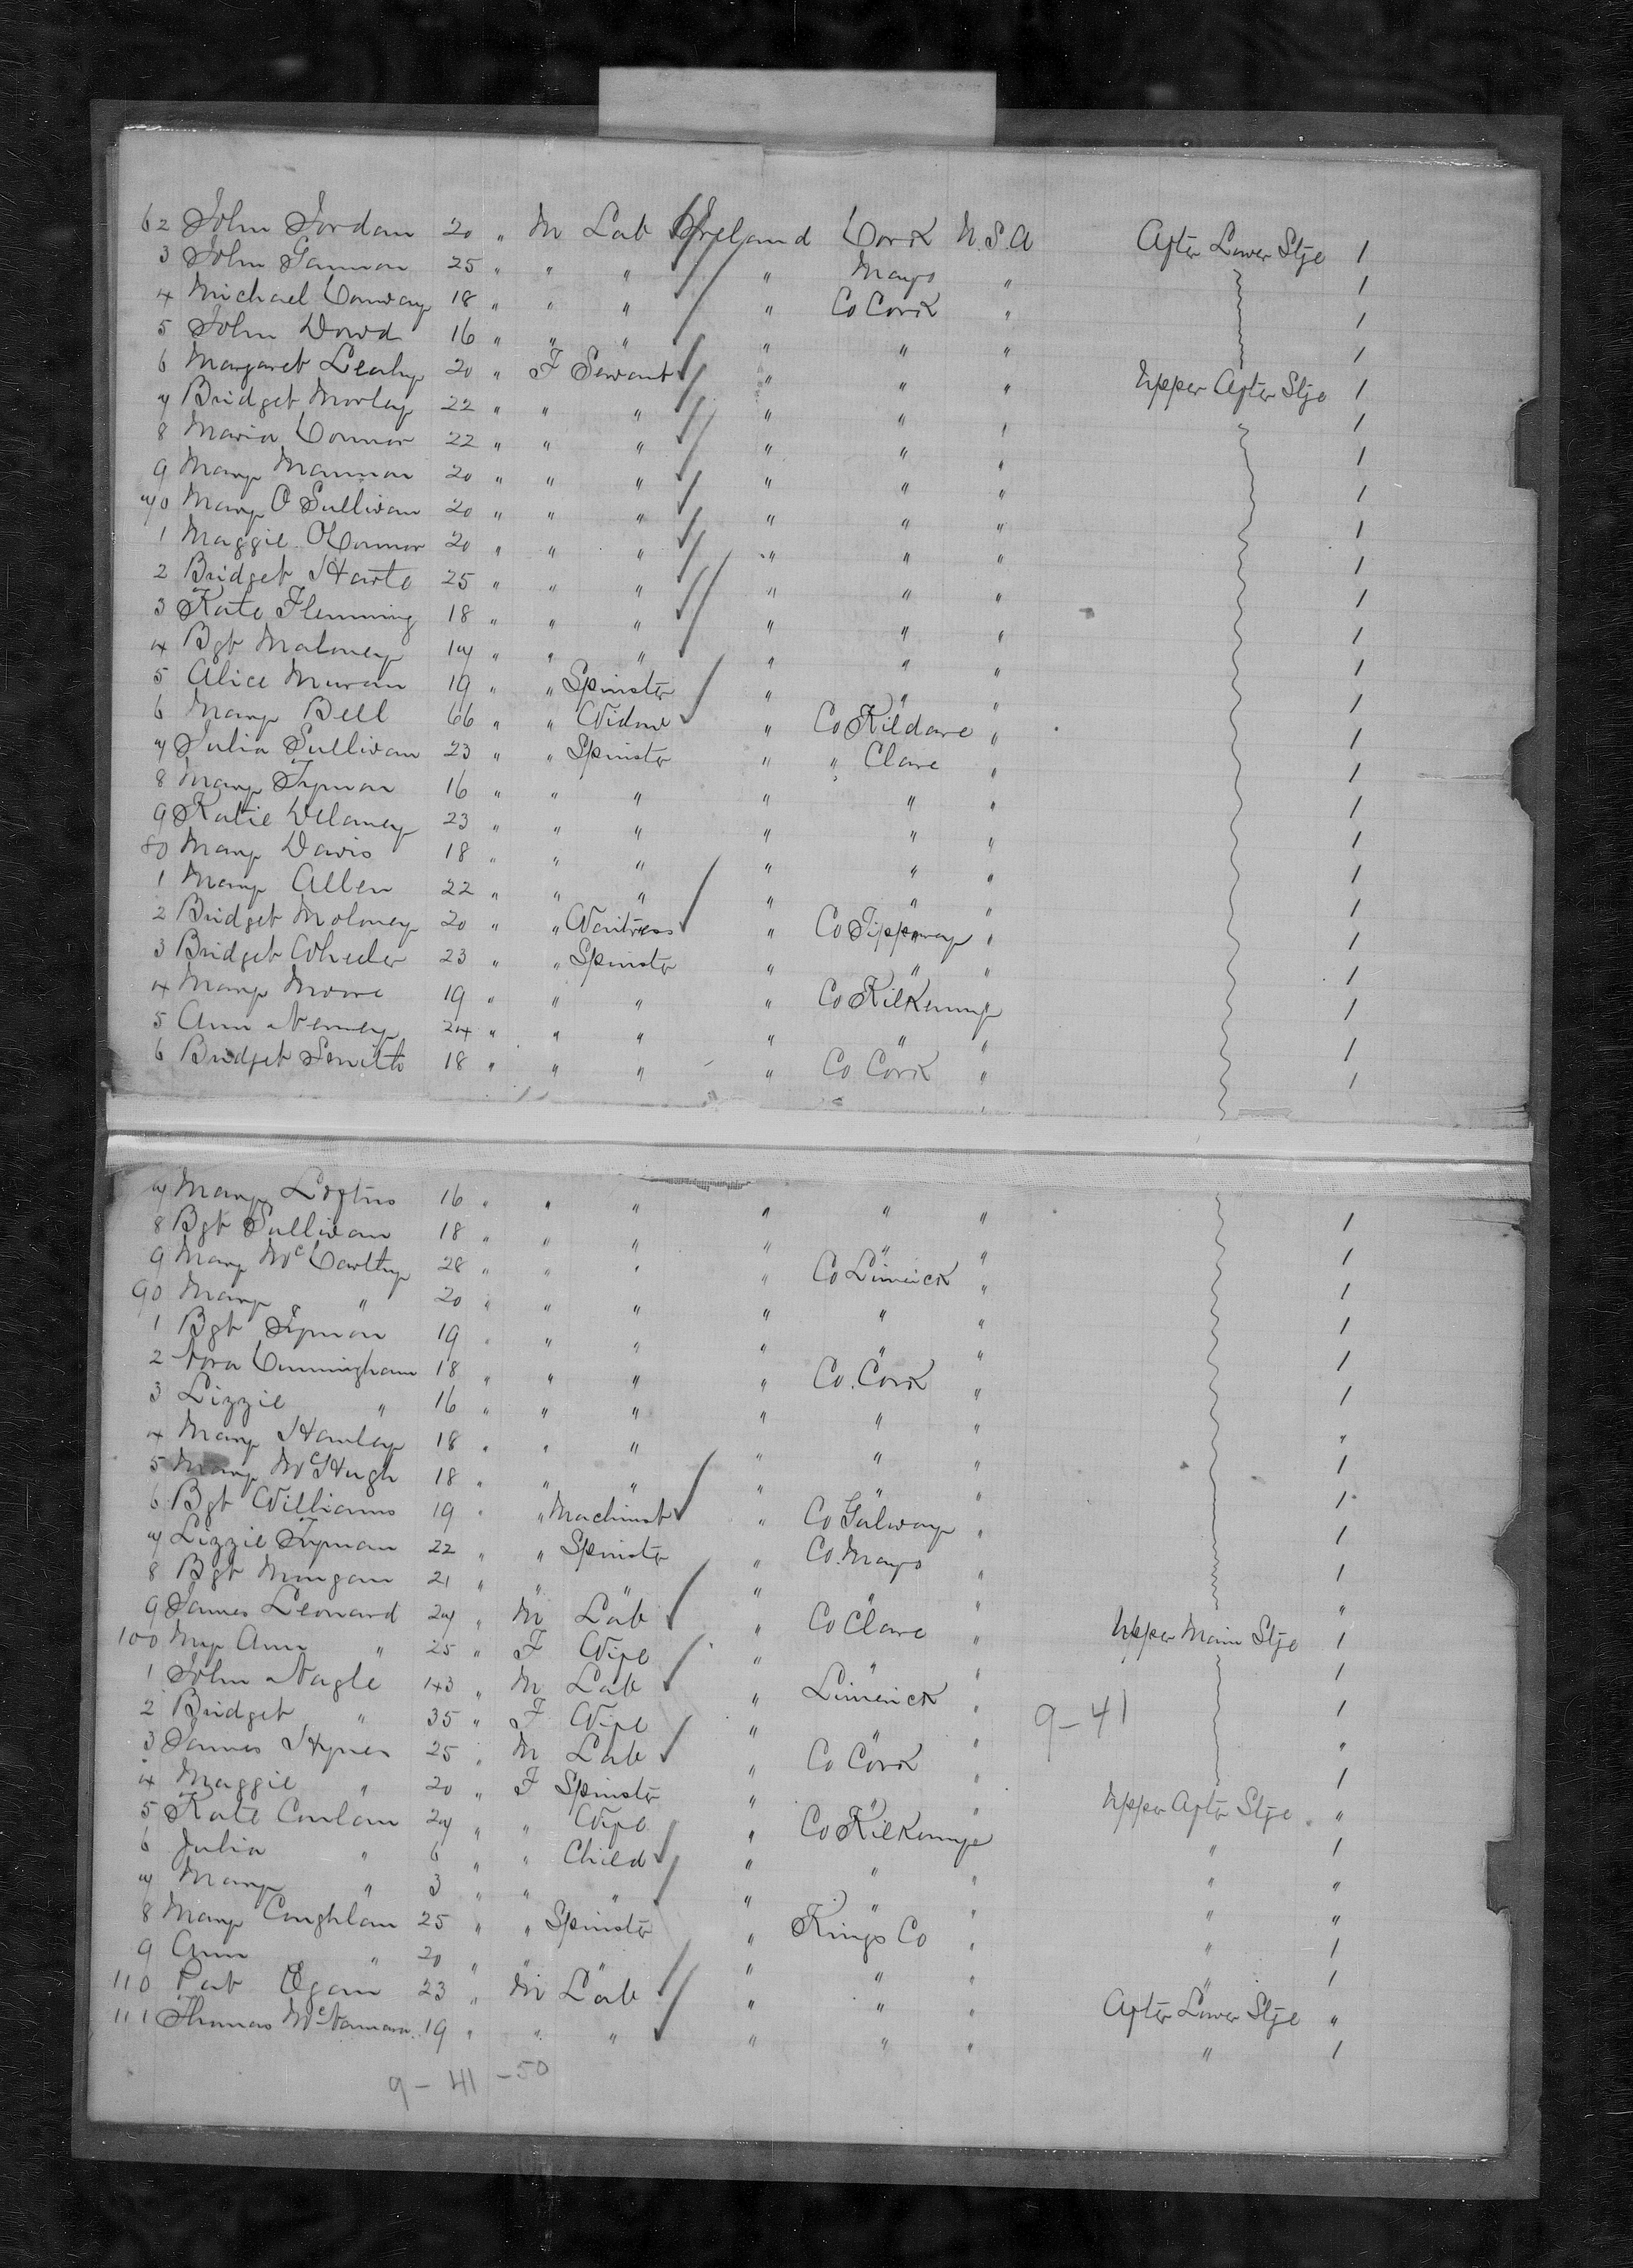 62 John Jordan 20 " M Lab Ireland Cork U.S.A After Lower Stge 1
3 John Gannon 25 " " " " Mayo " 1
4 Michael Conway 18 " " " " Co Cork " 1
5 John Dowd 16 " " " " " " 1
6 Margaret Leahy 20 " F Servant " " " Upper After Stge 1
7 Bridget Morley 22 " " " " " " 1
8 Maria Connor 22 " " " " " " 1
9 Mary Mannon 20 " " " " " " 1
70 Mary O Sullivan 20 " " " " " " 1
1 Maggie O'Connor 20 " " " " " " 1
2 Bridget Harte 25 " " " " " " 1
3 Kate Flemming 18 " " " " " " 1
4 Bgt Maloney 17 " " " " " " 1
5 Alice Muran 19 " " Spinster " " " 1
6 Mary Bell 66 " " Widow " Co Kildare " 1
7 Julia Sullivan 23 " " Spinster " " Clare " 1
8 Mary Tynan 16 " " " " " " 1
9 Katie Delaney 23 " " " " " " 1
80 Mary Davis 18 " " " " " " 1
1 Mary Allen 22 " " " " " " 1
2 Bridget Moloney 20 " " Waitress " Co Tipperary " 1
3 Bridget Wheeler 23 " " Spinster " " " 1
4 Mary Moore 19 " " " " Co Kilkenny " 1
5 Ann Nerney 24 " " " " " " 1
6 Bridget Smith 18 " " " " Co Cork " 1
7 Mary Loftus 16 " " " " " " 1
8 Bgt Sullivan 18 " " " " " " 1
9 Mary McCarthy 28 " " " " Co Limrick " 1
90 Mary " 20 " " " " " " 1
1 Bgt Tynan 19 " " " " " " 1
2 Nora Cunningham 18 " " " " Co. Cork " 1
3 Lizzie " 16 " " " " " " "
4 Mary Hanley 18 " " " " " " 1
5 Mary McHugh 18 " " " " " " 1
6 Bgt Williams 19 " " Machinist " Co Galway " 1
7 Lizzie Tynan 22 " " Spinster " Co. Mayo " 1
8 Bgt Mungan 21 " " " " " " "
9 James Leonard 27 " M Lab " Co Clare " Upper Main Stge 1
100 My Ann " 25 " F Wife " " " 1
1 John Nagle 43 " M Lab " Limerick " 1
9-41
2 Bridget " 35 " F Wife " " " "
3 James Hynes 25 " M Lab " Co Cork " 1
4 Maggie " 20 " F Spinster " " " Upper After Stge "
5 Kate Conlan 27 " " Wife " Co Kilkenny " " 1
6 Julia " 6 " " Child " " " " "
7 Mary " 3 " " " " " " " "
8 Mary Coughlan 25 " " Spinster " Kings Co " " 1
9 Ann " 20 " " " " " " " 1
110 Pat Egan 23 " M Lab " " " After Lower Stge "
111 Thomas McNamara 19 " " " " " " " 1
9-41-50